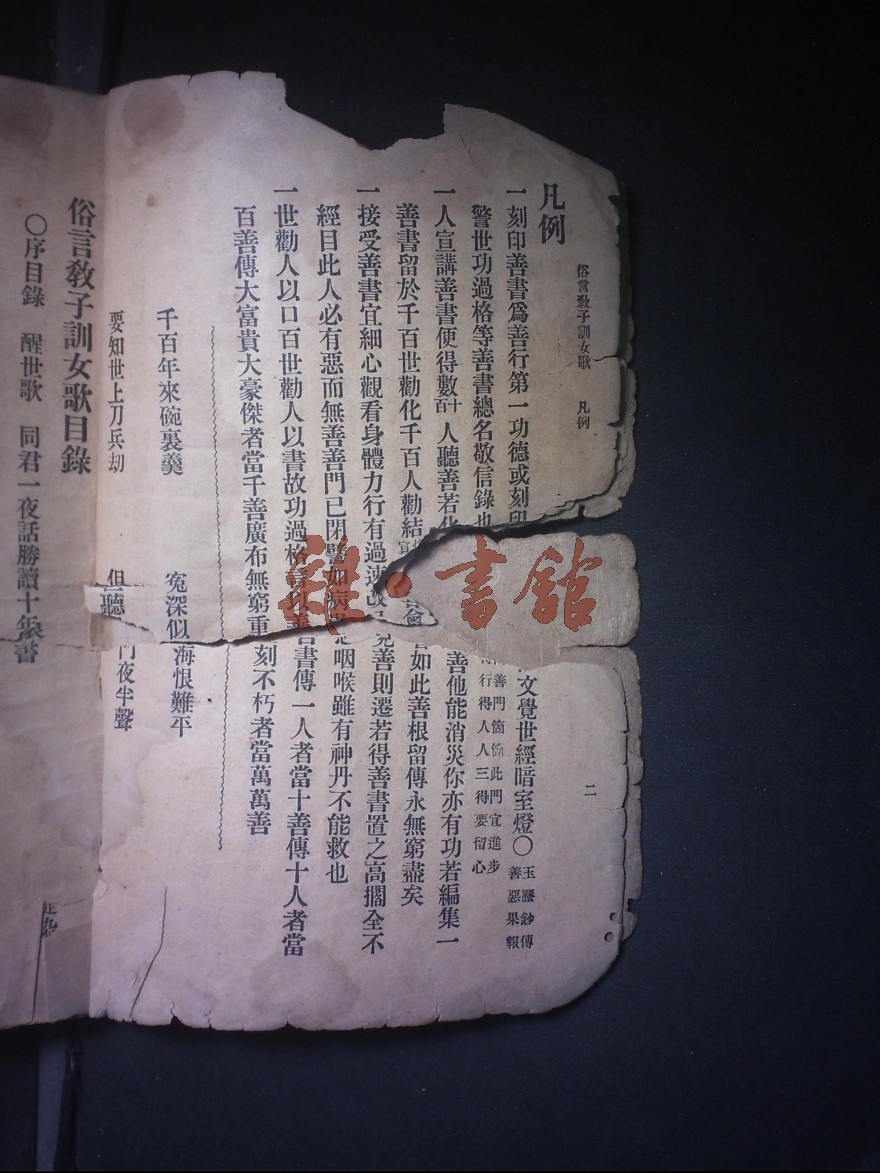 俗言教子訓女歌 凡例 二
凡例
一刻印善書爲善行第一功德或刻印 文覺世經暗室燈〇玉歷鈔傳善惡果報
警世功過格等善書總名敬信錄也 善門箇箇此門宜進步 行得人人三得要留心
一人宣講善書便得數十百人聽善若化 善他能消災你亦有功若編集一
善書留於千百世勸化千百人勸結 如此善根留傳永無窮盡矣
一接受善書宜細心觀看身體力行有過速改 見善則遷若得善書置之高擱全不
經目此人必有惡而無善善門已閉譬如病 咽喉雖有神丹不能救也
一世勸人以口百世勸人以書故功過格 以善書傳一人者當十善傳十人者當
百善傳大富貴大豪傑者當千善廣布無窮重刻不朽者當萬萬善
千百年來碗裏羹 寃深似海恨難平
要知世上刀兵劫 但聽 門夜半聲
俗言教子訓女歌目錄
〇序目錄 醒世歌 同君一夜話勝讀十年書
雜·書館